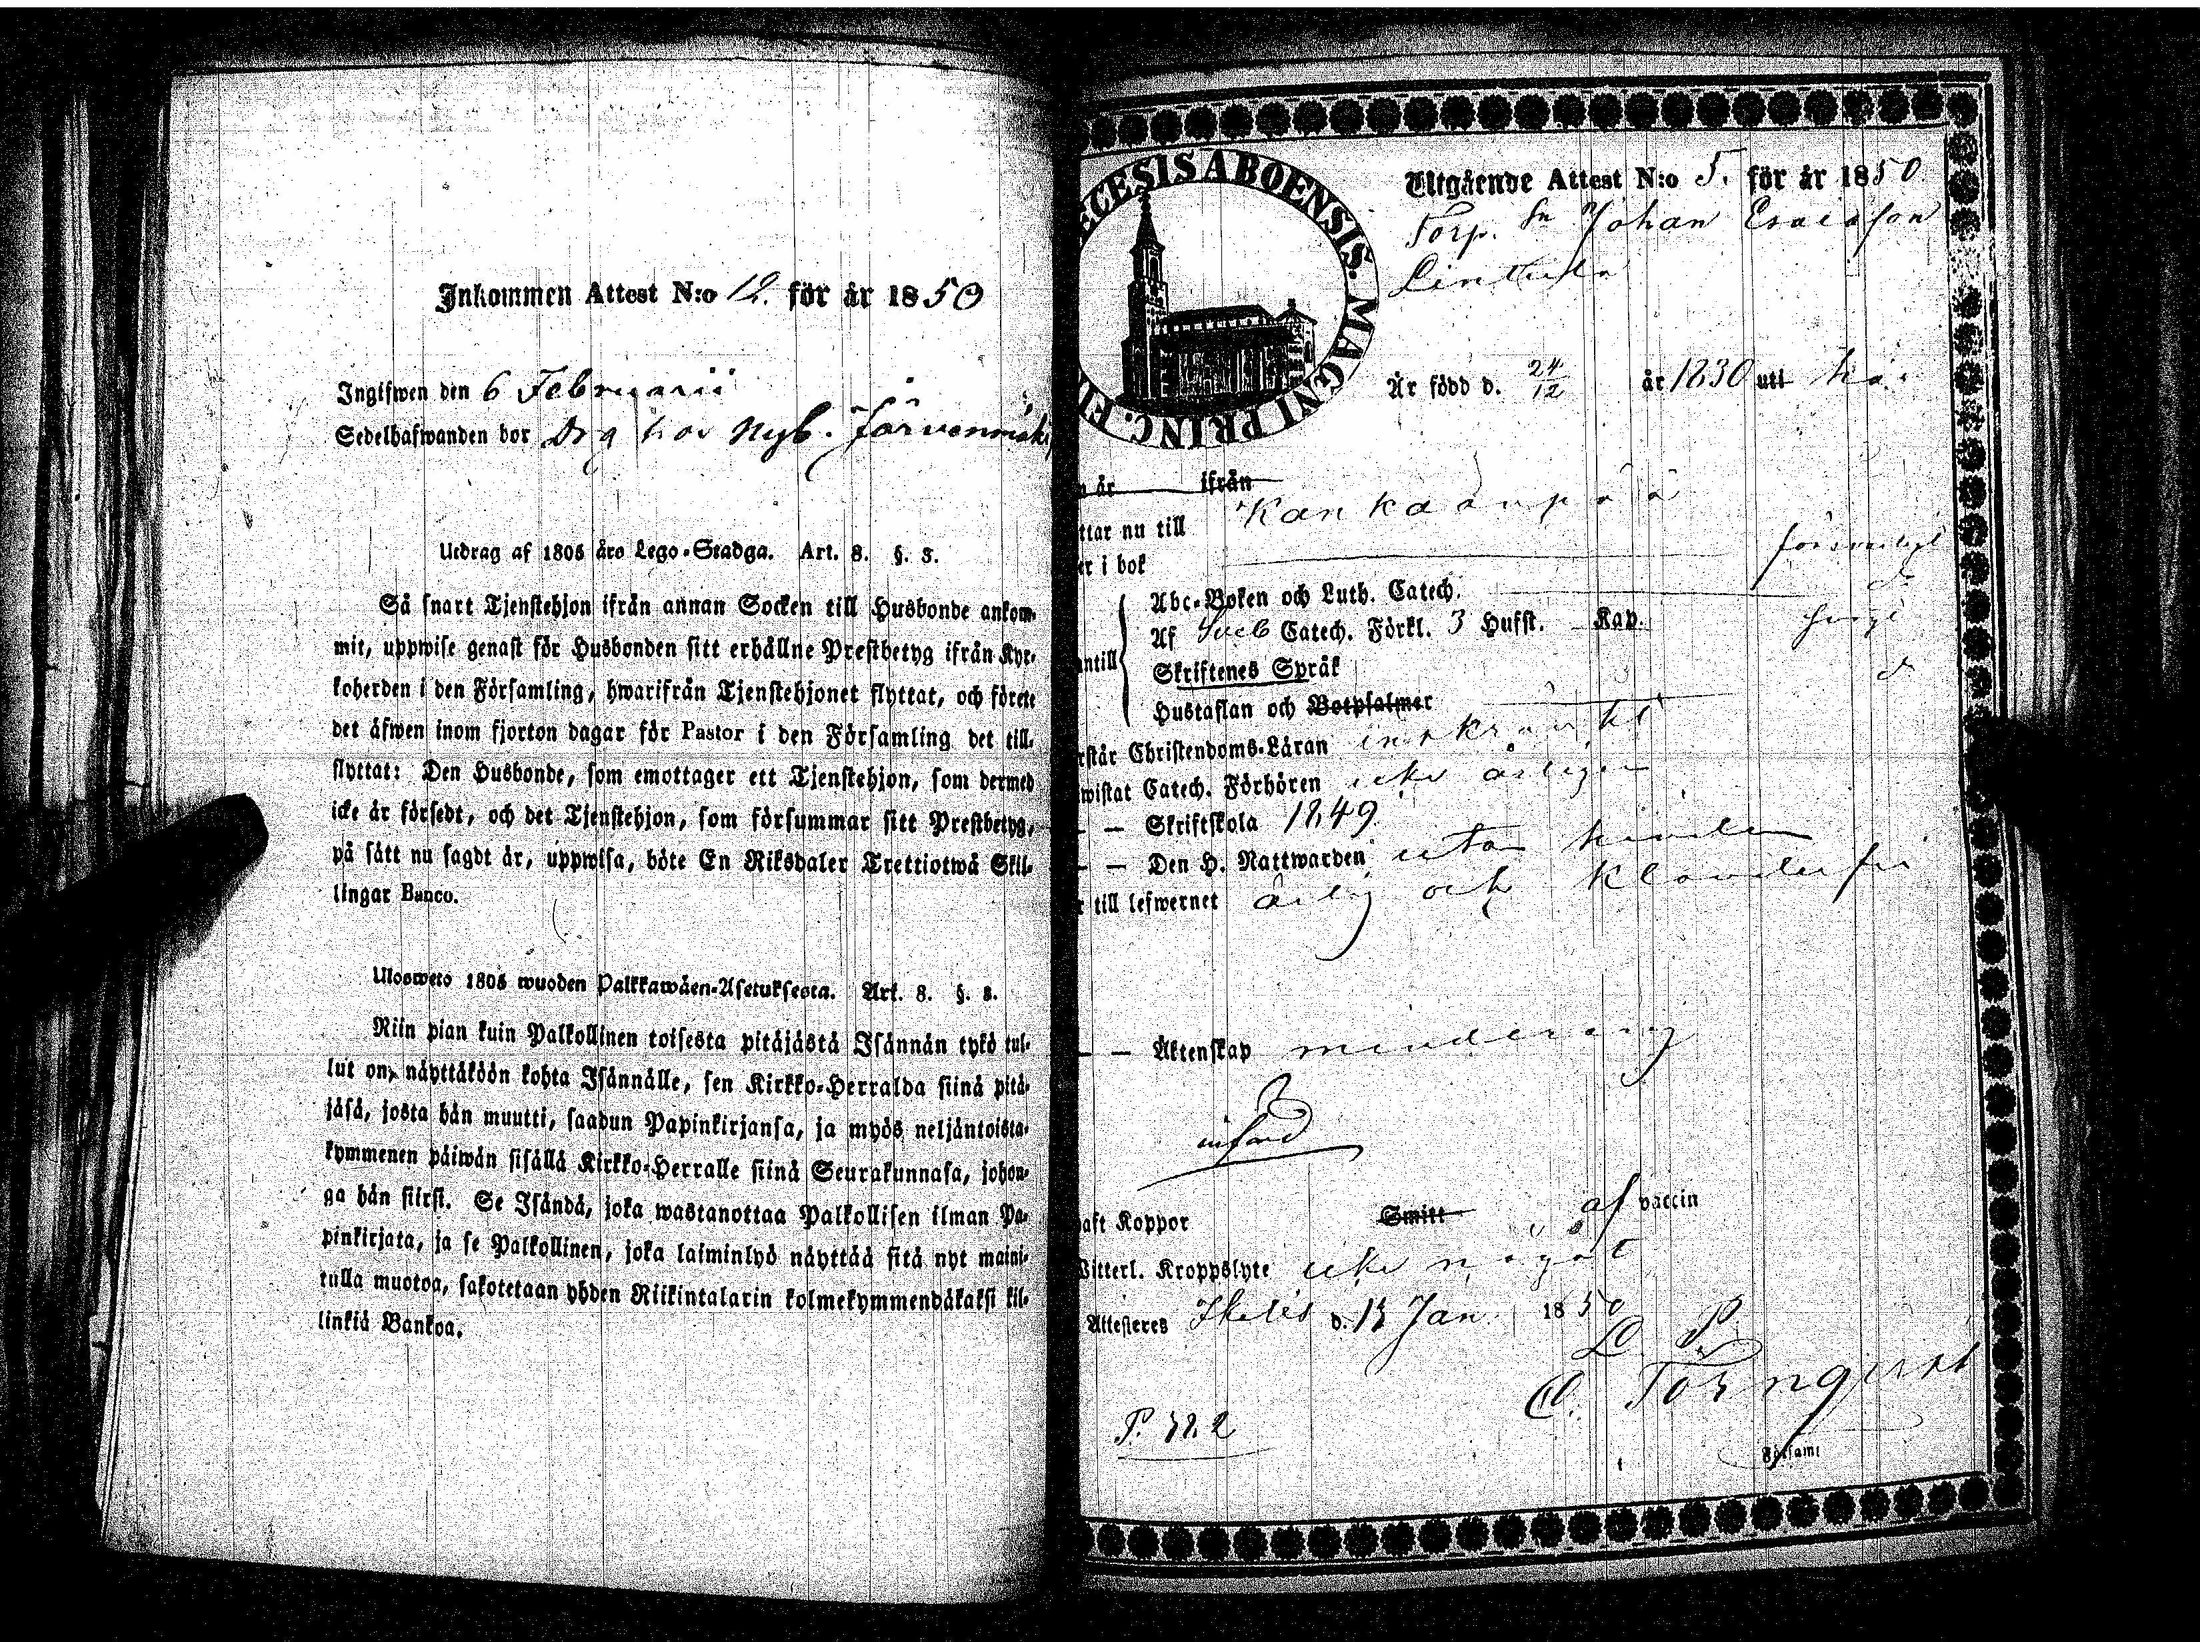 Inkommen Attest N:o 12. för år 1850
Ingifwen den 6 Februarii
Sedelhafwanden bor Drg hos Nyb. Järvenmäki
Utdrag af 1805 års Lego-Stadga. Art. 8. §. 3.
Så snart Tjenstehjon ifrån annan Socken till Husbonde ankom-
mit, uppwise genast för Husbonden sitt erhållne Prestbetyg ifrån Kyr-
koherden i den Församling, hwarifrån Tjenstehjonet flyttat, och förete
det äfwen inom fjorton dagar för Pastor i den Församling det till-
flyttat: Den Husbonde, som emottager ett Tjenstehjon, som dermed
icke är försedt, och det Tjenstehjon, som försummar sitt Prestbetyg,
på sätt nu sagdt är, uppwisa, böte En Riksdaler Trettiotwå Skil-
lingar Banco.
Ulosweto 1805 wuoden Palkkawäen-Asetuksesta. Art. 8. §. 3.
Niin pian kuin Palkollinen toisesta pitäjästä Isännän tykö tul-
lut on, näyttäköön kohta Isännälle, sen Kirkko-Herralda siinä pitä-
jäsä, josta hän muutti, saadun Papinkirjansa, ja myös neljäntoista-
kymmenen päiwän sisällä Kirkko-Herralle siinä Seurakunnasa, johon-
ga hän siirsi. Se Isändä, joka wastanottaa Palkollisen ilman Pa-
pinkirjata, ja se Palkollinen, joka laiminlyö näyttää sitä nyt maini-
tulla muotoa, sakotetaan yhden Riikintalarin kolmekymmendäkaksi kil-
linkiä Bankoa.
ECESIS ABOENSIS. MAGNI PRINC. FI
Utgående Attest N:o 5. för år 1850
Torp. Sn Johan Esaiasson
Är född d. 24/12 år 1830 uti här
n år ifrån
ttar nu till Kankaanpää
er i bok försvarligt
Abc-Boken och Luth. Catech. do
Af Sveb Catech. Förkl. 3 Hufst. Kap. svagt
antill Skriftenes Språk
Hustaflan och Botpsalmer do
rstår Christendoms-Läran inskränkt
wistat Catech. Förhören icke årligen
— — Skriftskola 1849
— — Den H. Nattwarden utan hinder
r till lefwernet ärlig och klanderfri
— — Äktenskap minderårig
införd
haft Koppor Smitt af vaccin
Witterl. Kroppslyte icke något
Attesteres Ikalis d. 13 Jan 1850
Törnqvist
P. 782
Församl